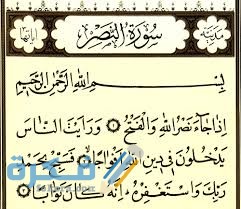 مدنية سورة النصر آياتها ٣
بسم الله الرحمن الرحيم
إِذَا جَاءَ نَصْرُ اللَّهِ وَالْفَتْحُ ۝ وَرَأَيْتَ النَّاسَ
يَدْخُلُونَ فِي دِينِ اللَّهِ أَفْوَاجًا ۝ فَسَبِّحْ بِحَمْدِ
رَبِّكَ وَاسْتَغْفِرْهُ إِنَّهُ كَانَ تَوَّابًا ۝
فكرة